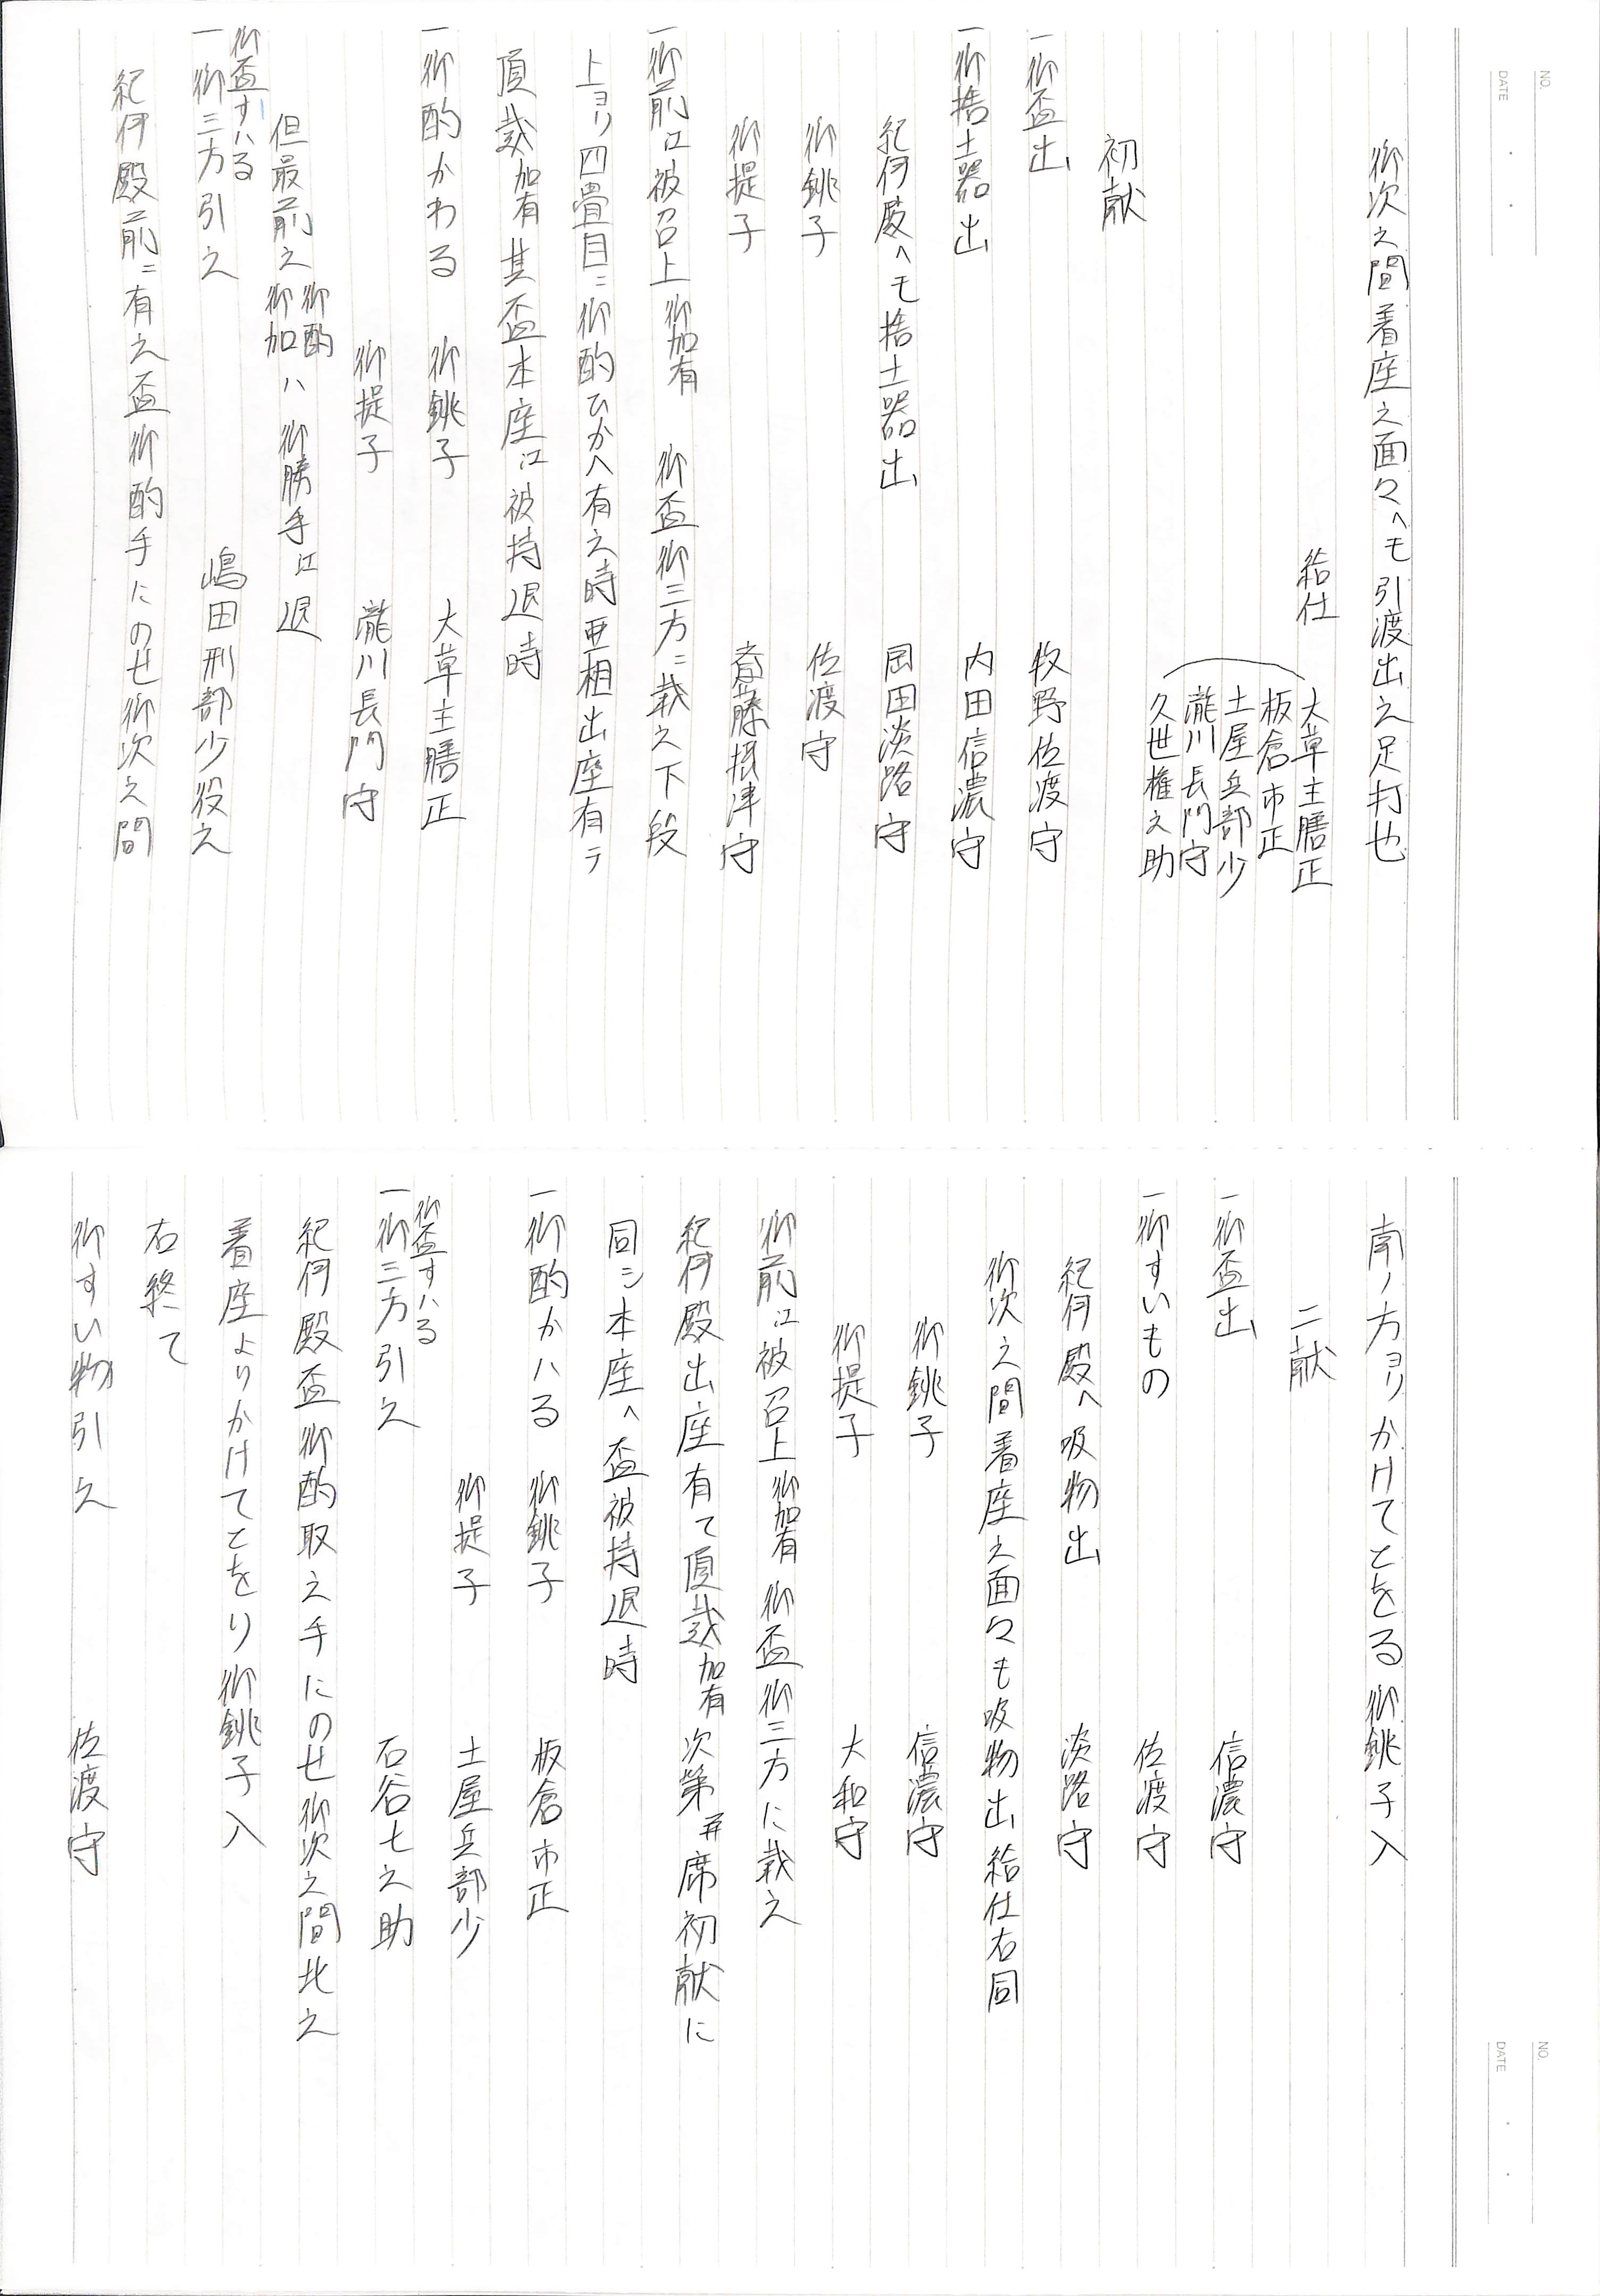 NO.
DATE
御次之間着座之面々へモ引渡出之足打也
給仕
大草主膳正
板倉市正
土屋兵部少
瀧川長門守
久世権之助
初献
一御盃出　牧野佐渡守
一御捨土器出　内田信濃守
紀伊殿へモ捨土器出　岡田淡路守
御銚子　佐渡守
御提子　斎藤摂津守
一御前江被召上御加有　御盃御三方ニ載之下段
上ヨリ四畳目ニ御酌ひかへ有之時亜相出座有テ
頂戴加有其盃本座江被持退時
一御酌かわる　御銚子　大草主膳正
御提子　瀧川長門守
但最前之御酌御加ハ御勝手江退
御盃すハる
一御三方引之　嶋田刑部少役之
紀伊殿前ニ有之盃御酌手にのせ御次之間
NO.
DATE
南ノ方ヨリかけてとをる御銚子入
二献
一御盃出　信濃守
一御すいもの　佐渡守
紀伊殿へ吸物出　淡路守
御次之間着座之面々も吸物出給仕右同
御銚子　信濃守
御提子　大和守
御前江被召上御加有御盃御三方に載之
紀伊殿出座有て頂戴加有次第并席初献に
同シ本座へ盃被持退時
一御酌かハる　御銚子　板倉市正
御提子　土屋兵部少
御盃すハる
一御三方引之　石谷七之助
紀伊殿盃御酌取之手にのせ御次之間北之
着座よりかけてとをり御銚子入
右終て
御すい物引之　佐渡守